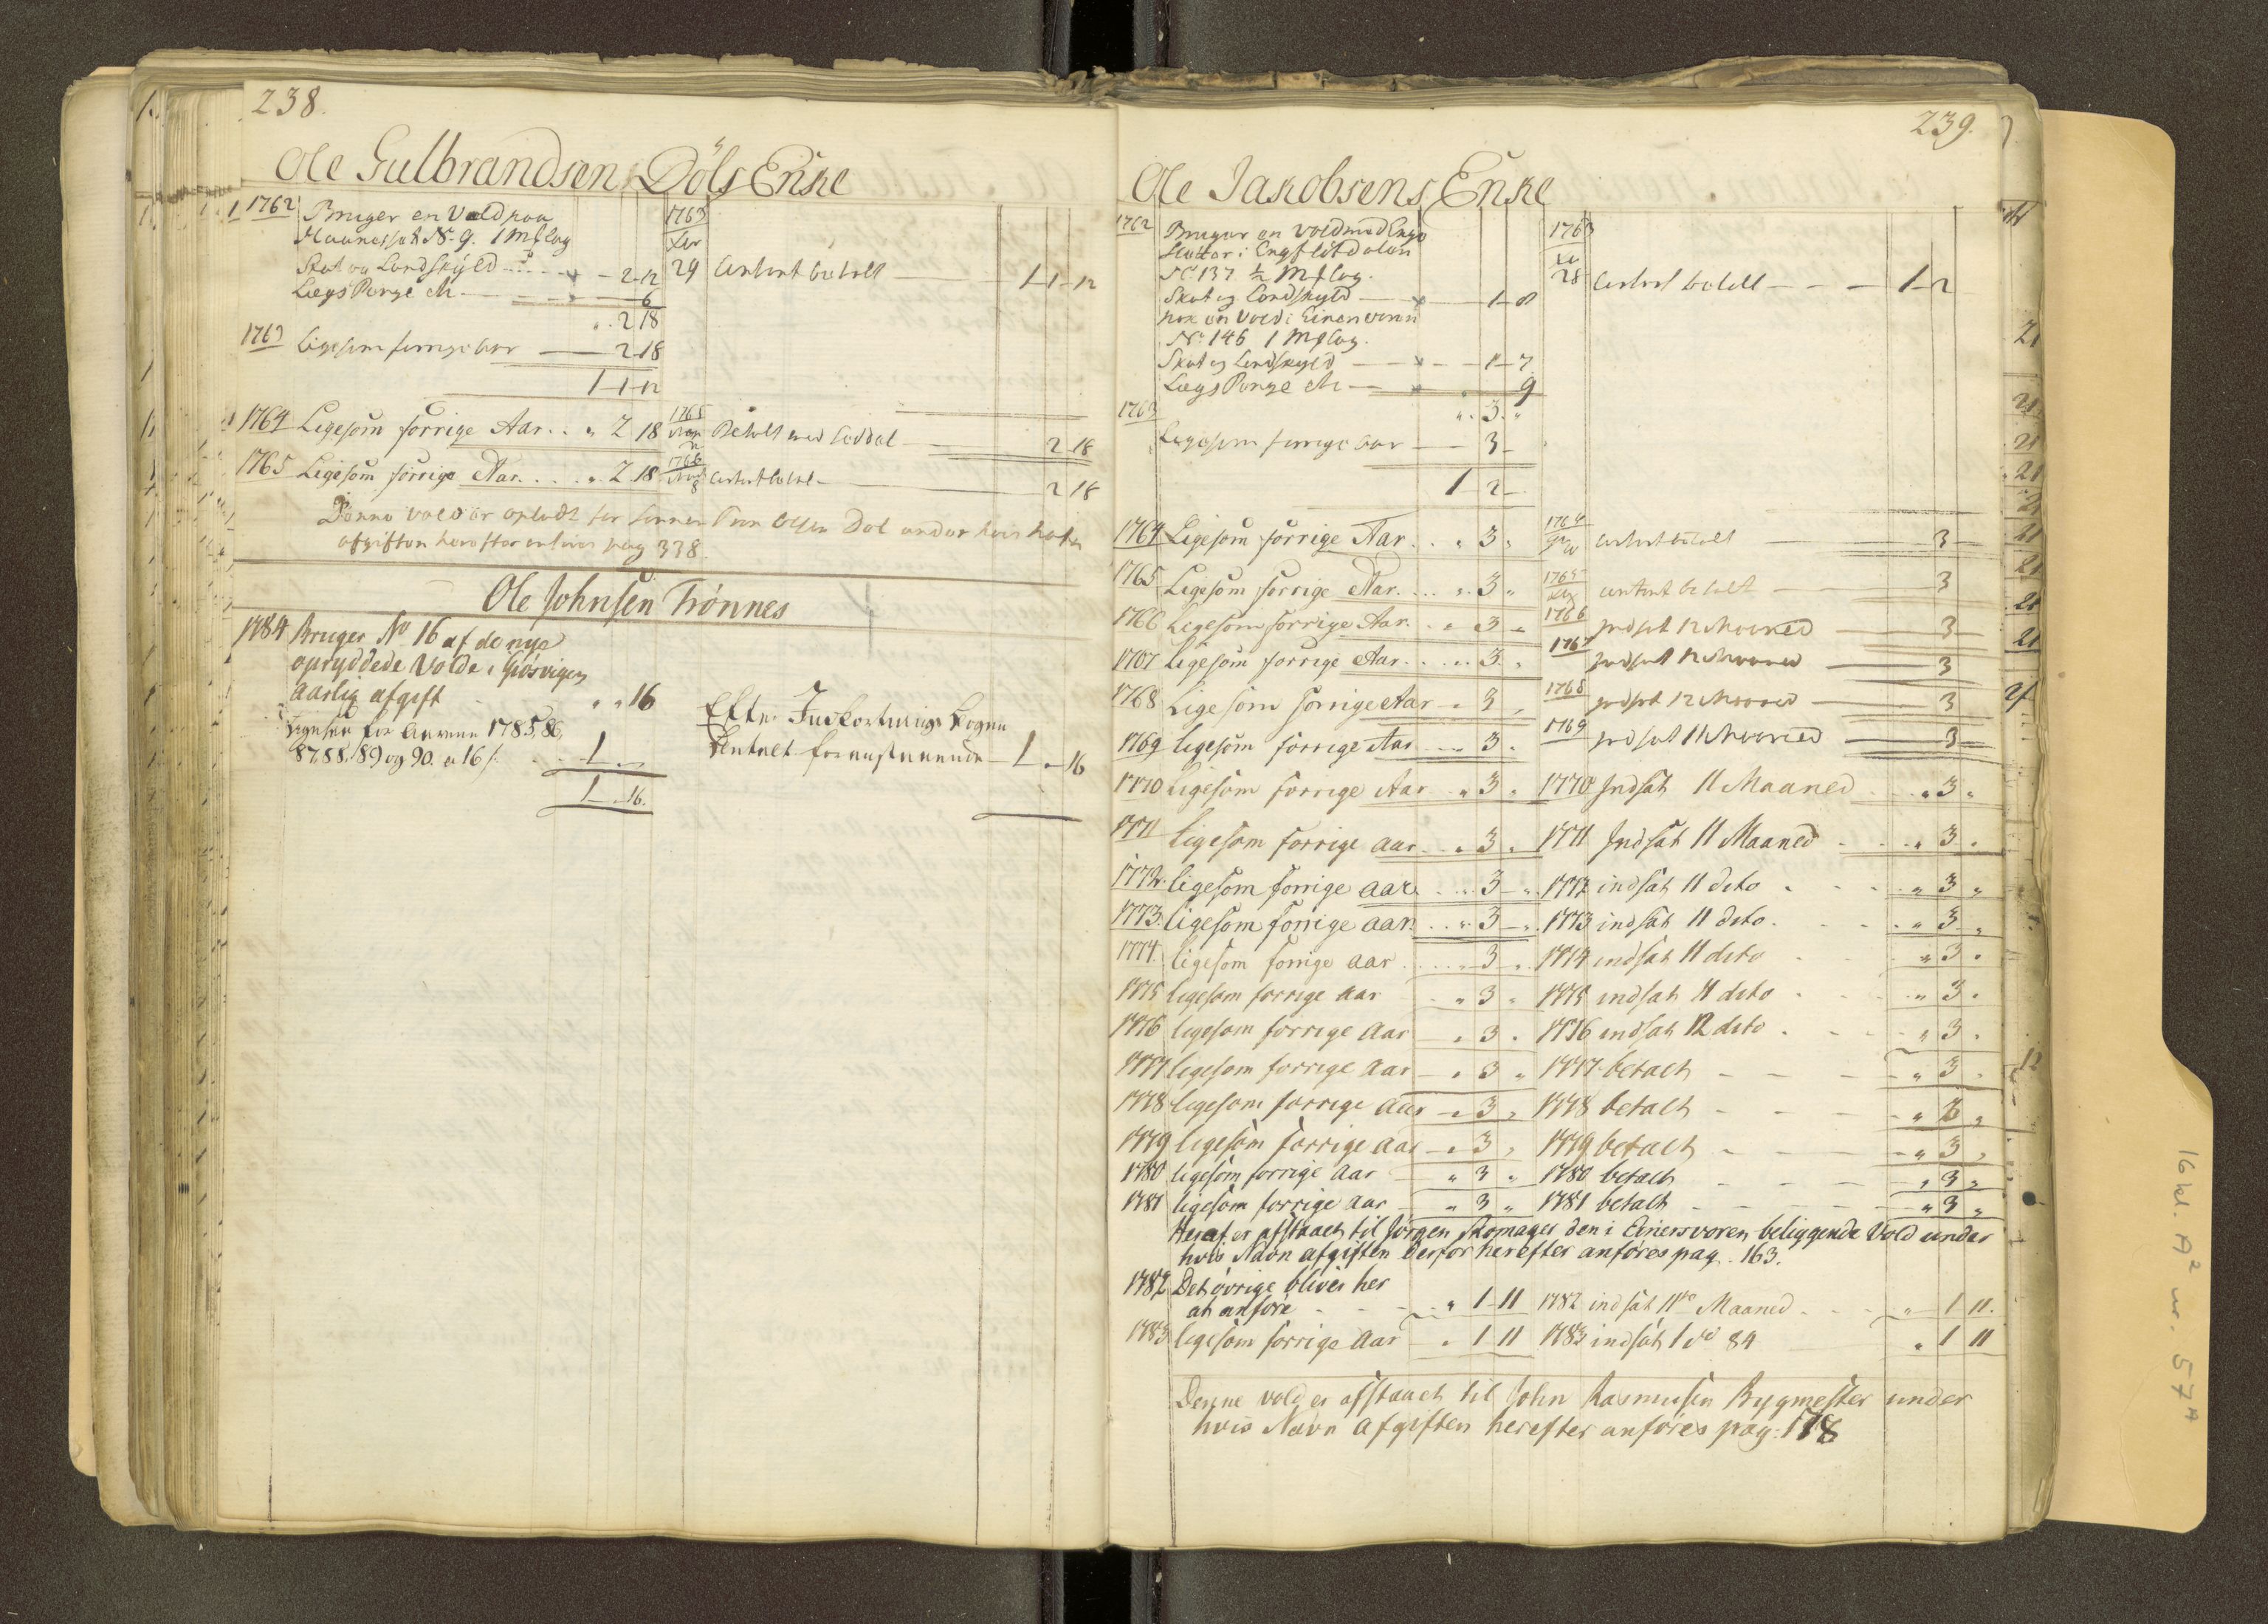 238.
Ole Gulbrandsen Döls Enke
1762 Bruger en Vold paa
N. 9. 1 Mßlag
Skat og Landskyld 2-12
LægsPenge 6
" 2 18
1763 Ligesom forrige Aar 2 18
1-1-12
1763
29 Contant betalt 1-1-12
1764 Ligesom forrige Aar. . " 2 18
1765 Betalt med Seddel 2 18
1765 Ligesom forrige Aar. . . " 2 18
1766 8 Contant betal 2 18
Denne Vold er opladt for Sønnen Ole Döl under hvis
afgiften herefter anføres pag 338.
Ole Johnsen Trönnes
1784 Bruger No 16 af de nye
opryddede Volde i Giösvigen
aarlig afgift " " 16
Ligesaa for Aarene 1785, 86,
87, 88, 89 og 90. a 16 ß. 1 "
1 - 16.
Efter Bogen
betalt foranstaaende 1 - 16
239.
Ole Jakobsens Enke
1762 Bruger en Vold med Enge
Sletter i Engsletdalen
No 137 ½ Mßlag.
Skat og Landskyld 1-8
nok en Vold i Einersvoren
No 146 1 Mßlag.
Skat og Landskyld 1-7
LægsPenge 9
" 3 "
1763
Ligesom forrige Aar 3
1 2
1763
28 Contant betalt 1-2
1764 Ligesom forrige Aar. . " 3 " contant betalt 3
1765 Ligesom forrige Aar. . . " 3 " 1765 contant betalt 3
1766 Ligesom forrige Aar. " 3 " 1766 Indsat 12 Maaned 3
1767 Ligesom forrige Aar. . . " 3 " 1767 Indsat 12 Maaned 3
1768 Ligesom forrige Aar " 3 " 1768 Indsat 12 Maaned 3
1769 ligesom forrige Aar " 3 " 1769 Indsat 11 Maaned 3
1770 Ligesom forrige Aar " 3 " 1770 Indsat 11 Maaned " 3 "
1771 Ligesom forrige aar " 3 " 1771 Indsat 11 Maaned " 3 "
1772. ligesom forrige aar " 3 " 1772 indsat 11 dito " 3 "
1773. ligesom forrige aar. " 3 " 1773 indsat 11 dito. " 3 "
1774. ligesom forrige aar " 3 " 1774 indsat 11 dito " 3 "
1775 ligesom forrige aar " 3 " 1775 indsat 11 dito " 3 "
1776 ligesom forrige aar " 3 " 1776 indsat 12 dito " 3 "
1777 ligesom forrige aar " 3 " 1777 betalt " 3 "
1778 ligesom forrige aar " 3 " 1778 betalt " 3 "
1779 ligesom forrige aar " 3 " 1779 betalt " 3 "
1780 ligesom forrige aar " 3 " 1780 betalt " 3 "
1781 ligesom forrige aar " 3 " 1781 betalt " 3 "
Heraf er afstaaet til Jörgen Skomager den i Einersvoren beliggende Vold under
hvis Navn afgiften derfor herefter anföres pag. 163.
1782 Det övrige bliver her
at anföre " 1 11 1782 indsat 11te Maaned " 1 11.
1783 ligesom forrige Aar " 1 11 1783 indsat 1 84 " 1 11
Denne vold er afstaaet til John Rasmusen Bygmester under
hvis Navn afgiften herefter anföres pag: 178
16 kl. A² nr. 57ᴬ